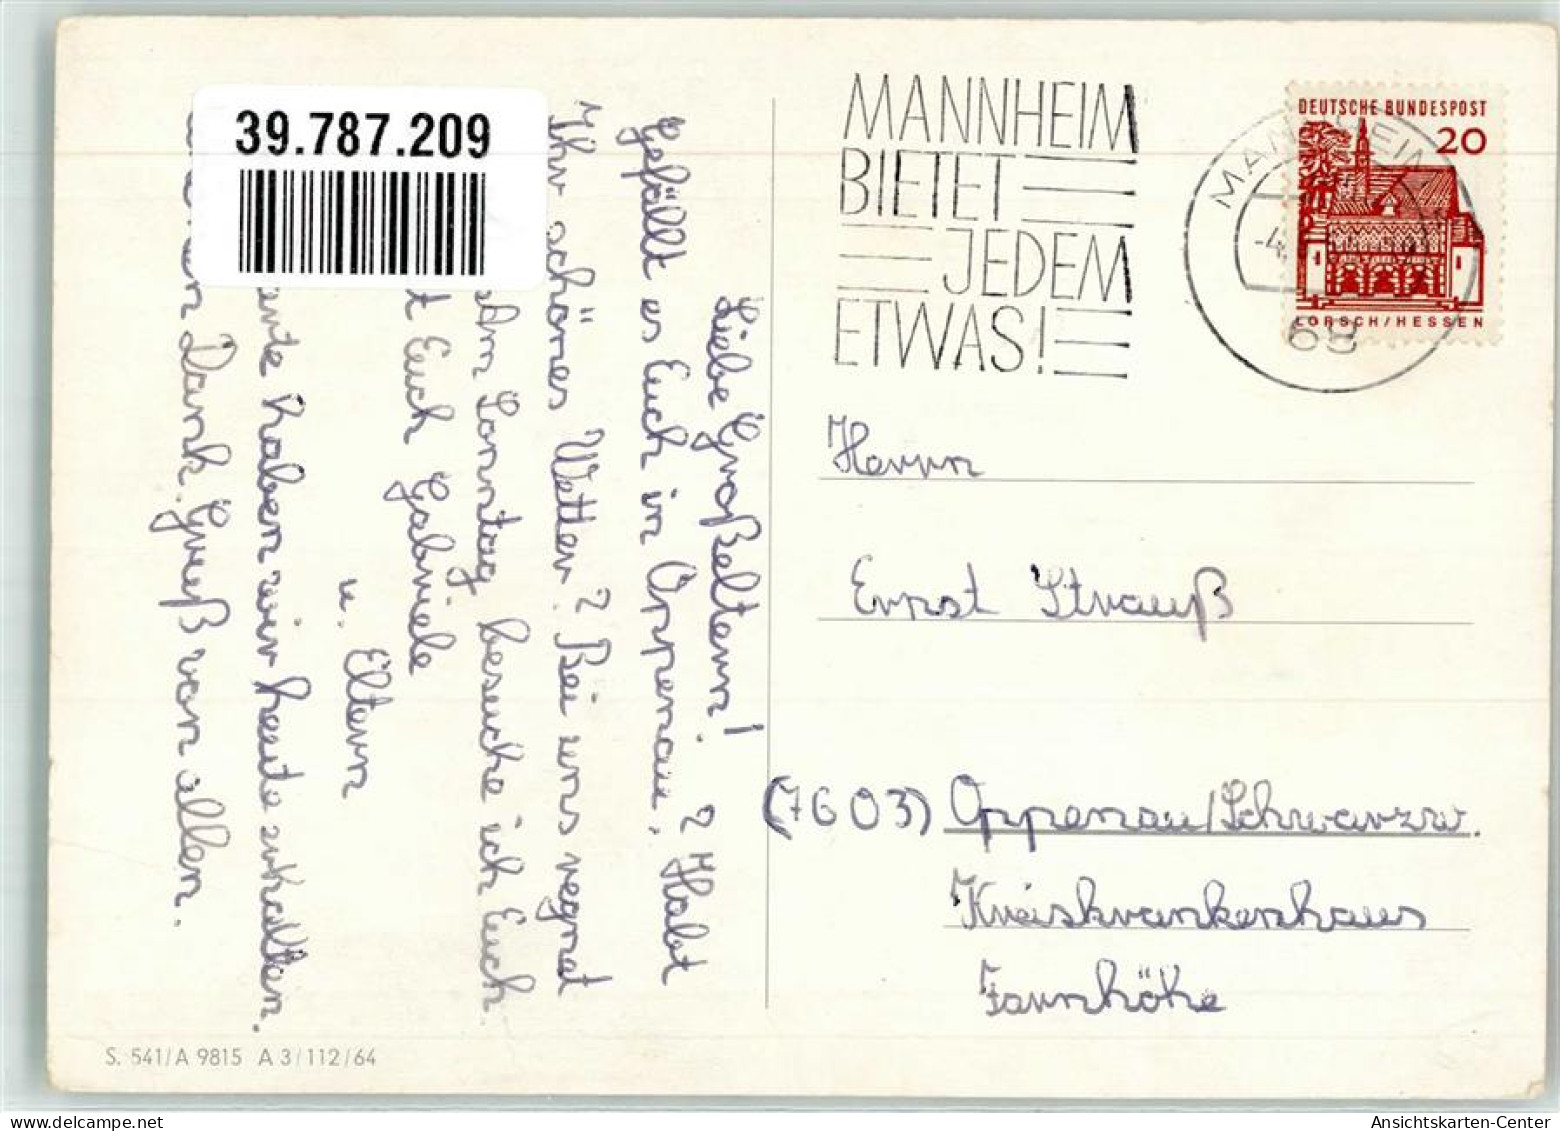 39.787.209
Liebe Großeltern!
Gefällt es Euch in Oppenau? Habt
Ihr schönes Wetter? Bei uns regnet
Am Sonntag besuche ich Euch
t Euch Gabriele
u. Eltern
haben wir heute erhalten.
Dank. Gruß von allen.
S. 541/A 9815 A 3/112/64
MANNHEIM
BIETET
JEDEM
ETWAS!
MANNHEIM
-4.
68
DEUTSCHE BUNDESPOST
20
LORSCH/HESSEN
Herrn
Ernst Strauß
(7603) Oppenau/Schwarzw.
Kreiskrankenhaus
Farnhöhe
Ansichtskarten-Center